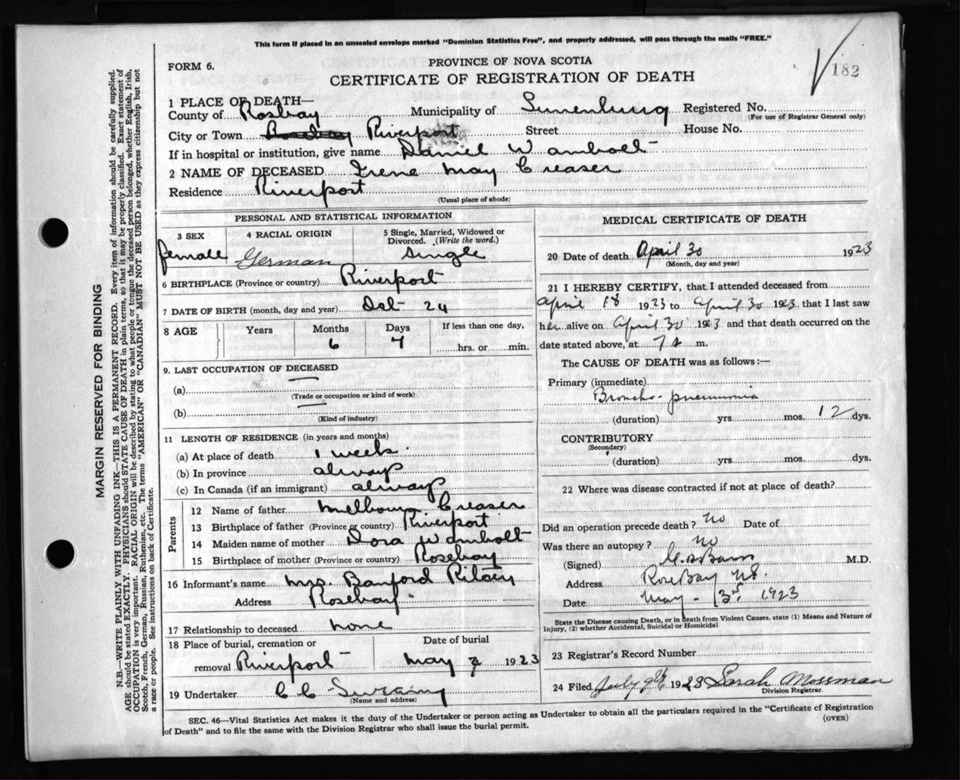 This form if placed in an unsealed envelope marked "Dominion Statistics Free", and properly addressed, will pass through the mails "FREE."
FORM 6.
PROVINCE OF NOVA SCOTIA
CERTIFICATE OF REGISTRATION OF DEATH
182
1 PLACE OF DEATH—
County of Rosebay Municipality of Lunenburg Registered No.
(For use of Registrar General only)
City or Town Riverport Street House No.
If in hospital or institution, give name Daniel Wambolt
2 NAME OF DECEASED Irene May Creaser
Residence Riverport
(Usual place of abode)
PERSONAL AND STATISTICAL INFORMATION
3 SEX 4 RACIAL ORIGIN 5 Single, Married, Widowed or Divorced. (Write the word.)
female German single
6 BIRTHPLACE (Province or country) Riverport
7 DATE OF BIRTH (month, day and year) Oct 24
8 AGE Years Months Days If less than one day,
6 7 hrs. or min.
9. LAST OCCUPATION OF DECEASED
(a)
(Trade or occupation or kind of work)
(b)
(Kind of industry)
11 LENGTH OF RESIDENCE (in years and months)
(a) At place of death 1 week
(b) In province always
(c) In Canada (if an immigrant) always
Parents
12 Name of father Melbourne Creaser
13 Birthplace of father (Province or country) Riverport
14 Maiden name of mother Dora Wambolt
15 Birthplace of mother (Province or country) Rosebay
16 Informant's name Mrs. Banford
Address Rosebay
17 Relationship to deceased none
18 Place of burial, cremation or removal Riverport
Date of burial May 2 1923
19 Undertaker C C
(Name and address)
MEDICAL CERTIFICATE OF DEATH
20 Date of death April 30 1923
(Month, day and year)
21 I HEREBY CERTIFY, that I attended deceased from
April 18 1923 to April 30 1923 that I last saw
her alive on April 30 1923 and that death occurred on the
date stated above, at 7 a m.
The CAUSE OF DEATH was as follows:—
Primary (immediate)
Broncho-pneumonia
(duration) yrs mos. 12 dys.
CONTRIBUTORY
(Secondary)
(duration) yrs. mos. dys.
22 Where was disease contracted if not at place of death?
Did an operation precede death? no Date of
Was there an autopsy? no
(Signed) M.D.
Address Rose Bay N.S.
Date May 1923
State the Disease causing Death, or in death from Violent Causes, state (1) Means and Nature of
Injury, (2) whether Accidental, Suicidal or Homicidal
23 Registrar's Record Number
24 Filed July 9th 1923 Sarah Mossman
Division Registrar.
SEC. 46—Vital Statistics Act makes it the duty of the Undertaker or person acting as Undertaker to obtain all the particulars required in the "Certificate of Registration
of Death" and to file the same with the Division Registrar who shall issue the burial permit.
(OVER)
MARGIN RESERVED FOR BINDING
N.B.—WRITE PLAINLY WITH UNFADING INK—THIS IS A PERMANENT RECORD. Every item of information should be carefully supplied.
AGE should be stated EXACTLY. PHYSICIANS should STATE CAUSE OF DEATH in plain terms, so that it may be properly classified. Exact statement of
OCCUPATION is very important. RACIAL ORIGIN will be described by stating to what people or tongue the deceased person belonged, whether English, Irish,
Scotch, French, German, Russian, Ruthenian, etc. The terms "AMERICAN" or "CANADIAN" MUST NOT BE USED as they express citizenship but not
a race or people. See instructions on back of Certificate.